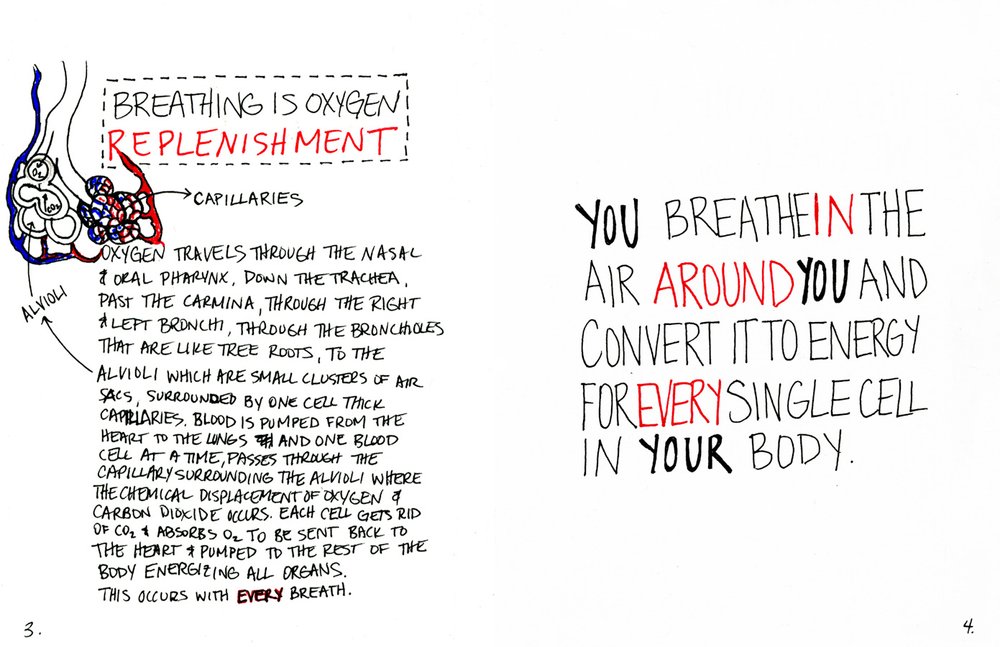 BREATHING IS OXYGEN
REPLENISHMENT
O2
CO2
CAPILLARIES
ALVIOLI
OXYGEN TRAVELS THROUGH THE NASAL
& ORAL PHARYNX, DOWN THE TRACHEA,
PAST THE CARMINA, THROUGH THE RIGHT
& LEFT BRONCHI, THROUGH THE BRONCHOLES
THAT ARE LIKE TREE ROOTS, TO THE
ALVIOLI WHICH ARE SMALL CLUSTERS OF AIR
SACS, SURROUNDED BY ONE CELL THICK
CAPILLARIES. BLOOD IS PUMPED FROM THE
HEART TO THE LUNGS AND ONE BLOOD
CELL AT A TIME, PASSES THROUGH THE
CAPILLARY SURROUNDING THE ALVIOLI WHERE
THE CHEMICAL DISPLACEMENT OF OXYGEN &
CARBON DIOXIDE OCCURS. EACH CELL GETS RID
OF CO2 & ABSORBS O2 TO BE SENT BACK TO
THE HEART & PUMPED TO THE REST OF THE
BODY ENERGIZING ALL ORGANS.
THIS OCCURS WITH EVERY BREATH.
3.
YOU BREATHE IN THE
AIR AROUND YOU AND
CONVERT IT TO ENERGY
FOR EVERY SINGLE CELL
IN YOUR BODY.
4.